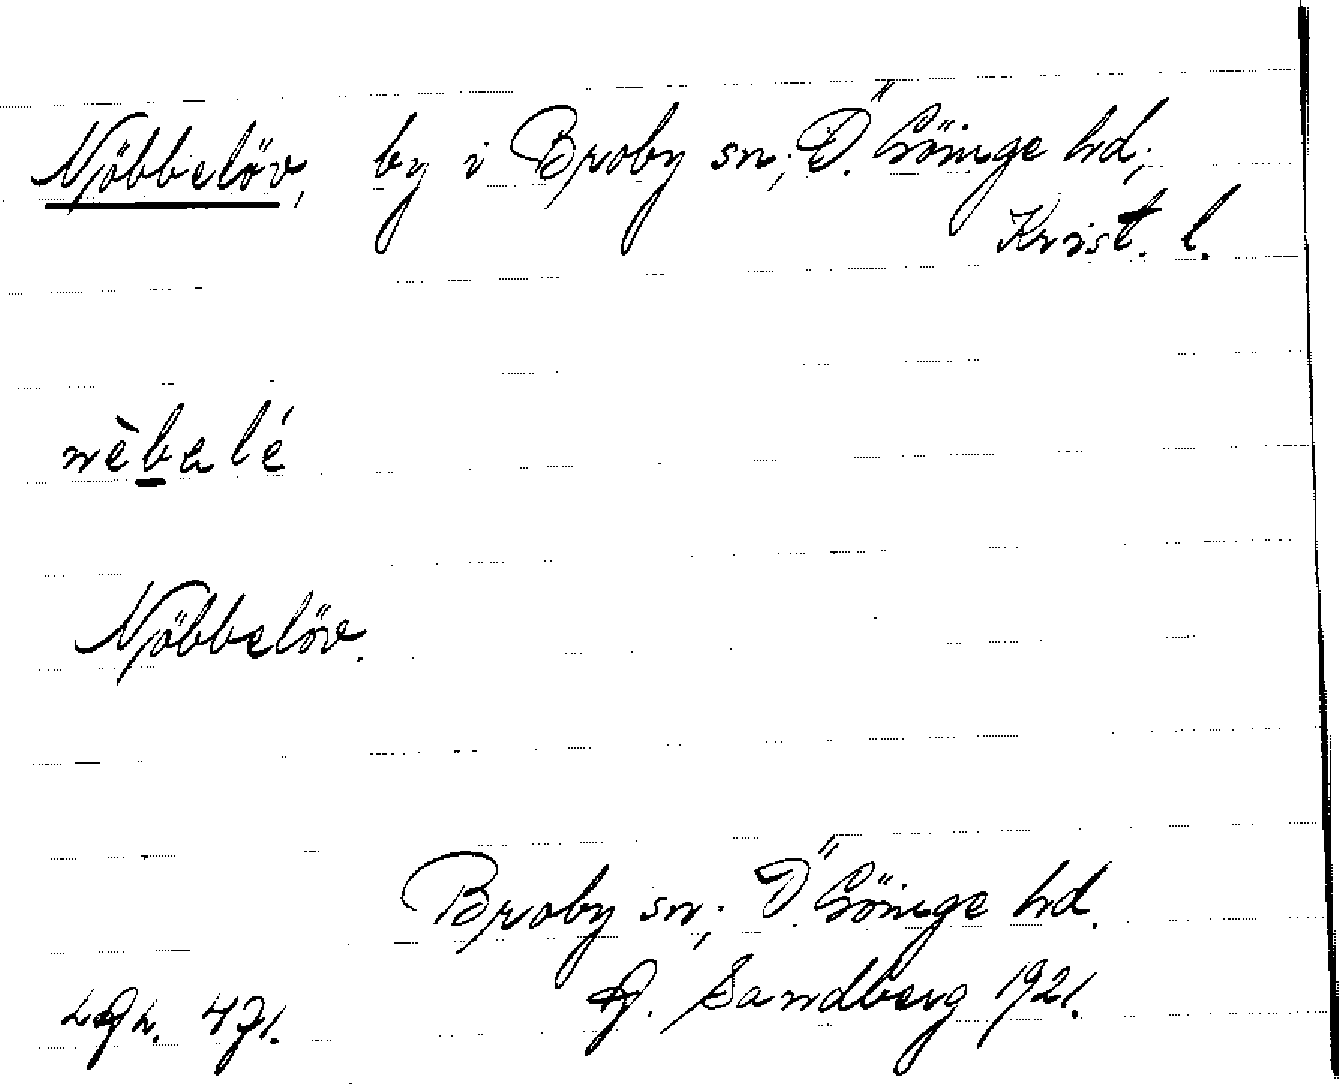 Njöbbelöv, by i Broby sn; Ö. Göinge hd;
Krist. l.
nèbalé
Njöbbelöv.
Broby sn; Ö. Göinge hd.
Sandberg 1921.
471.